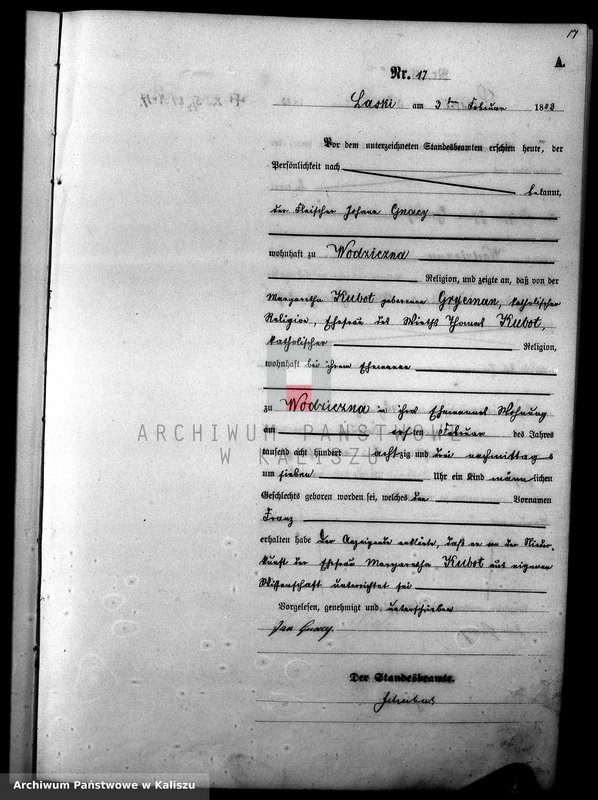 17
A.
Nr. 17
Laski am 3ten Februar 1883
Vor dem unterzeichneten Standesbeamten erschien heute, der
Persönlichkeit nach
bekannt,
der Fleischer Johann Gnacy
wohnhaft zu Wodziczna
Religion, und zeigte an, daß von der
Margaretha Kubot geborenen Grycman, katholischer
Religion, Ehefrau des Wirths Thomas Kubot,
katholischer Religion,
wohnhaft bei ihrem Ehemanne
zu Wodziczna in ihres Ehemannes Wohnung
am Februar des Jahres
tausend acht hundert achtzig und drei nachmittags
um sieben Uhr ein Kind männlichen
Geschlechts geboren worden sei, welches den Vornamen
Franz
erhalten habe Der Anzeigende erklärte, daß er von der Nieder-
kunft der Ehefrau Margaretha Kubot aus eigener
Wissenschaft unterrichtet sei
Vorgelesen, genehmigt und unterschrieben
Jan Gnacy.
Der Standesbeamte.
ARCHIWUM PAŃSTWOWE
W KALISZU
Archiwum Państwowe w Kaliszu